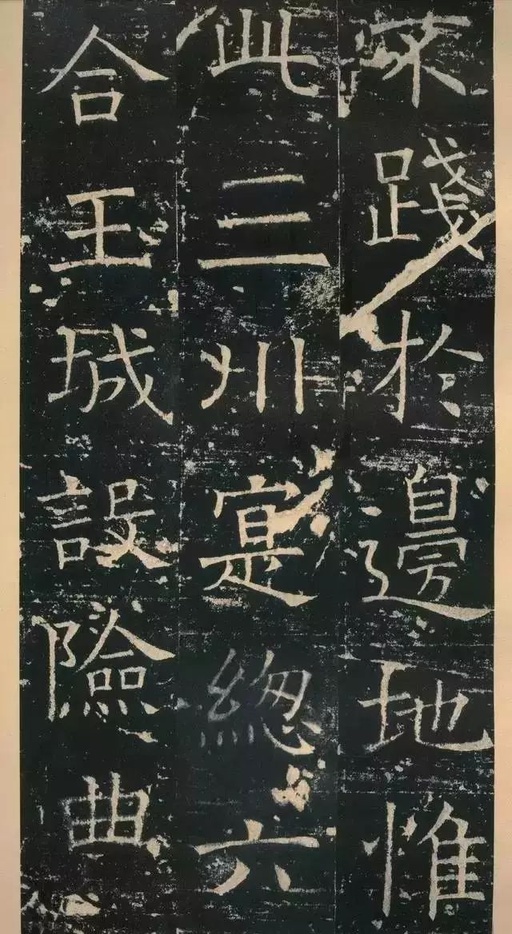 踐於邊地惟
此三州寔總六
合王城設險曲